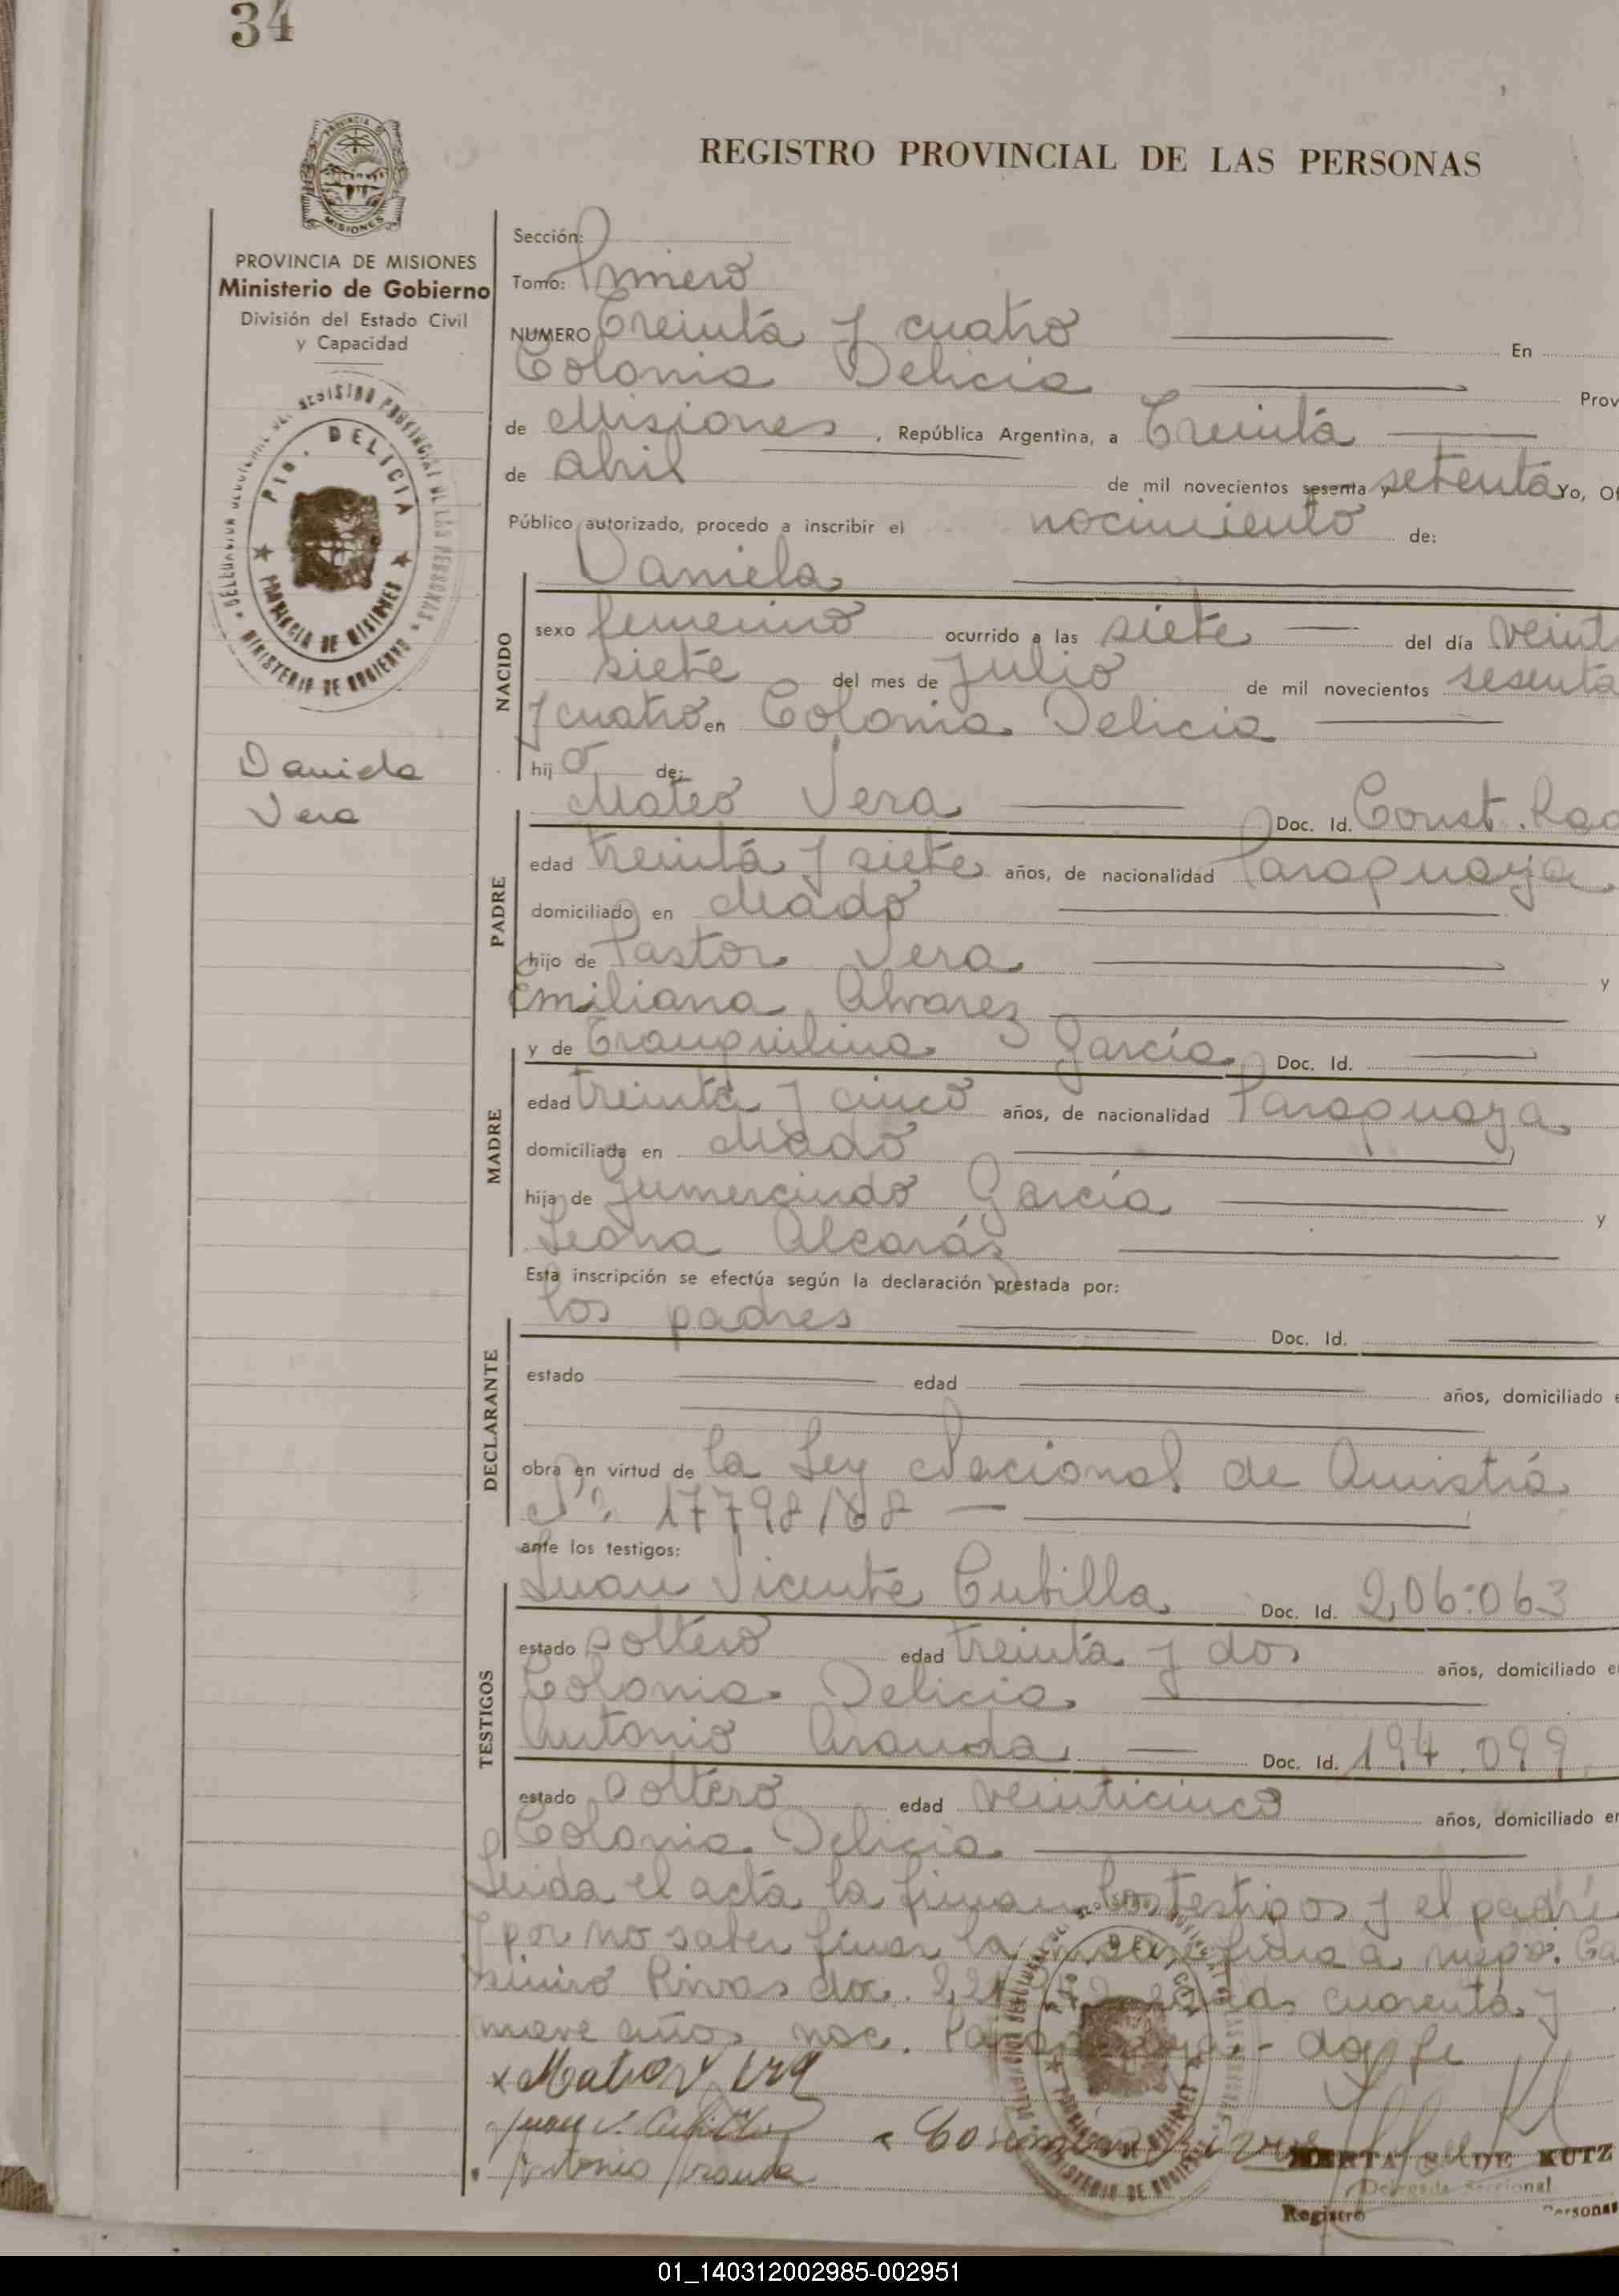 34
REGISTRO PROVINCIAL DE LAS PERSONAS
PROVINCIA DE MISIONES
Ministerio de Gobierno
División del Estado Civil
y Capacidad
PROVINCIA DE
MISIONES
DELICIA
PROVINCIA DE MISIONES
MINISTERIO DE GOBIERNO
Daniela
Vera
Sección:
Tomo: Primero
NUMERO Treinta y cuatro En
Colonia Delicia Prov
de Misiones, República Argentina, a Treinta
de abril de mil novecientos sesenta y setenta Yo, Of
Público autorizado, procedo a inscribir el nacimiento de:
NACIDO
Daniela
sexo femenino ocurrido a las siete del día veint
siete del mes de Julio de mil novecientos sesenta
y cuatro en Colonia Delicia
hij a de:
PADRE
Mateo Vera Doc. Id. Const. Rad
edad treinta y siete años, de nacionalidad Paraguaya
domiciliado en Mado
hijo de Pastor Vera y
Emiliana Alvarez
MADRE
y de Tranquilina García Doc. Id.
edad treinta y cinco años, de nacionalidad Paraguaya
domiciliada en Mado
hija de Gumercindo García y
Leona Alcaráz
Esta inscripción se efectúa según la declaración prestada por:
DECLARANTE
los padres Doc. Id.
estado edad años, domiciliado e
obra en virtud de la Ley Nacional de Amistía
Nº: 17798/68
ante los testigos:
TESTIGOS
Juan Vicente Cubilla Doc. Id. 206.063
estado soltero edad treinta y dos años, domiciliado e
Colonia Delicia
Antonio Aranda Doc. Id. 194.099
estado soltero edad veinticinco años, domiciliado en
Colonia Delicia
Leida el acta la firman los testigos y el padre
y por no saber firmar la madre firma a ruego. Ca
simiro Rivas doc. cuarenta y
nueve años nac. Paraguaya - doy fe
x Mateo Vera
Juan V. Cubilla
Antonio Aranda
DE KUTZ
Delegada Seccional
Registro Personas
01_140312002985-002951